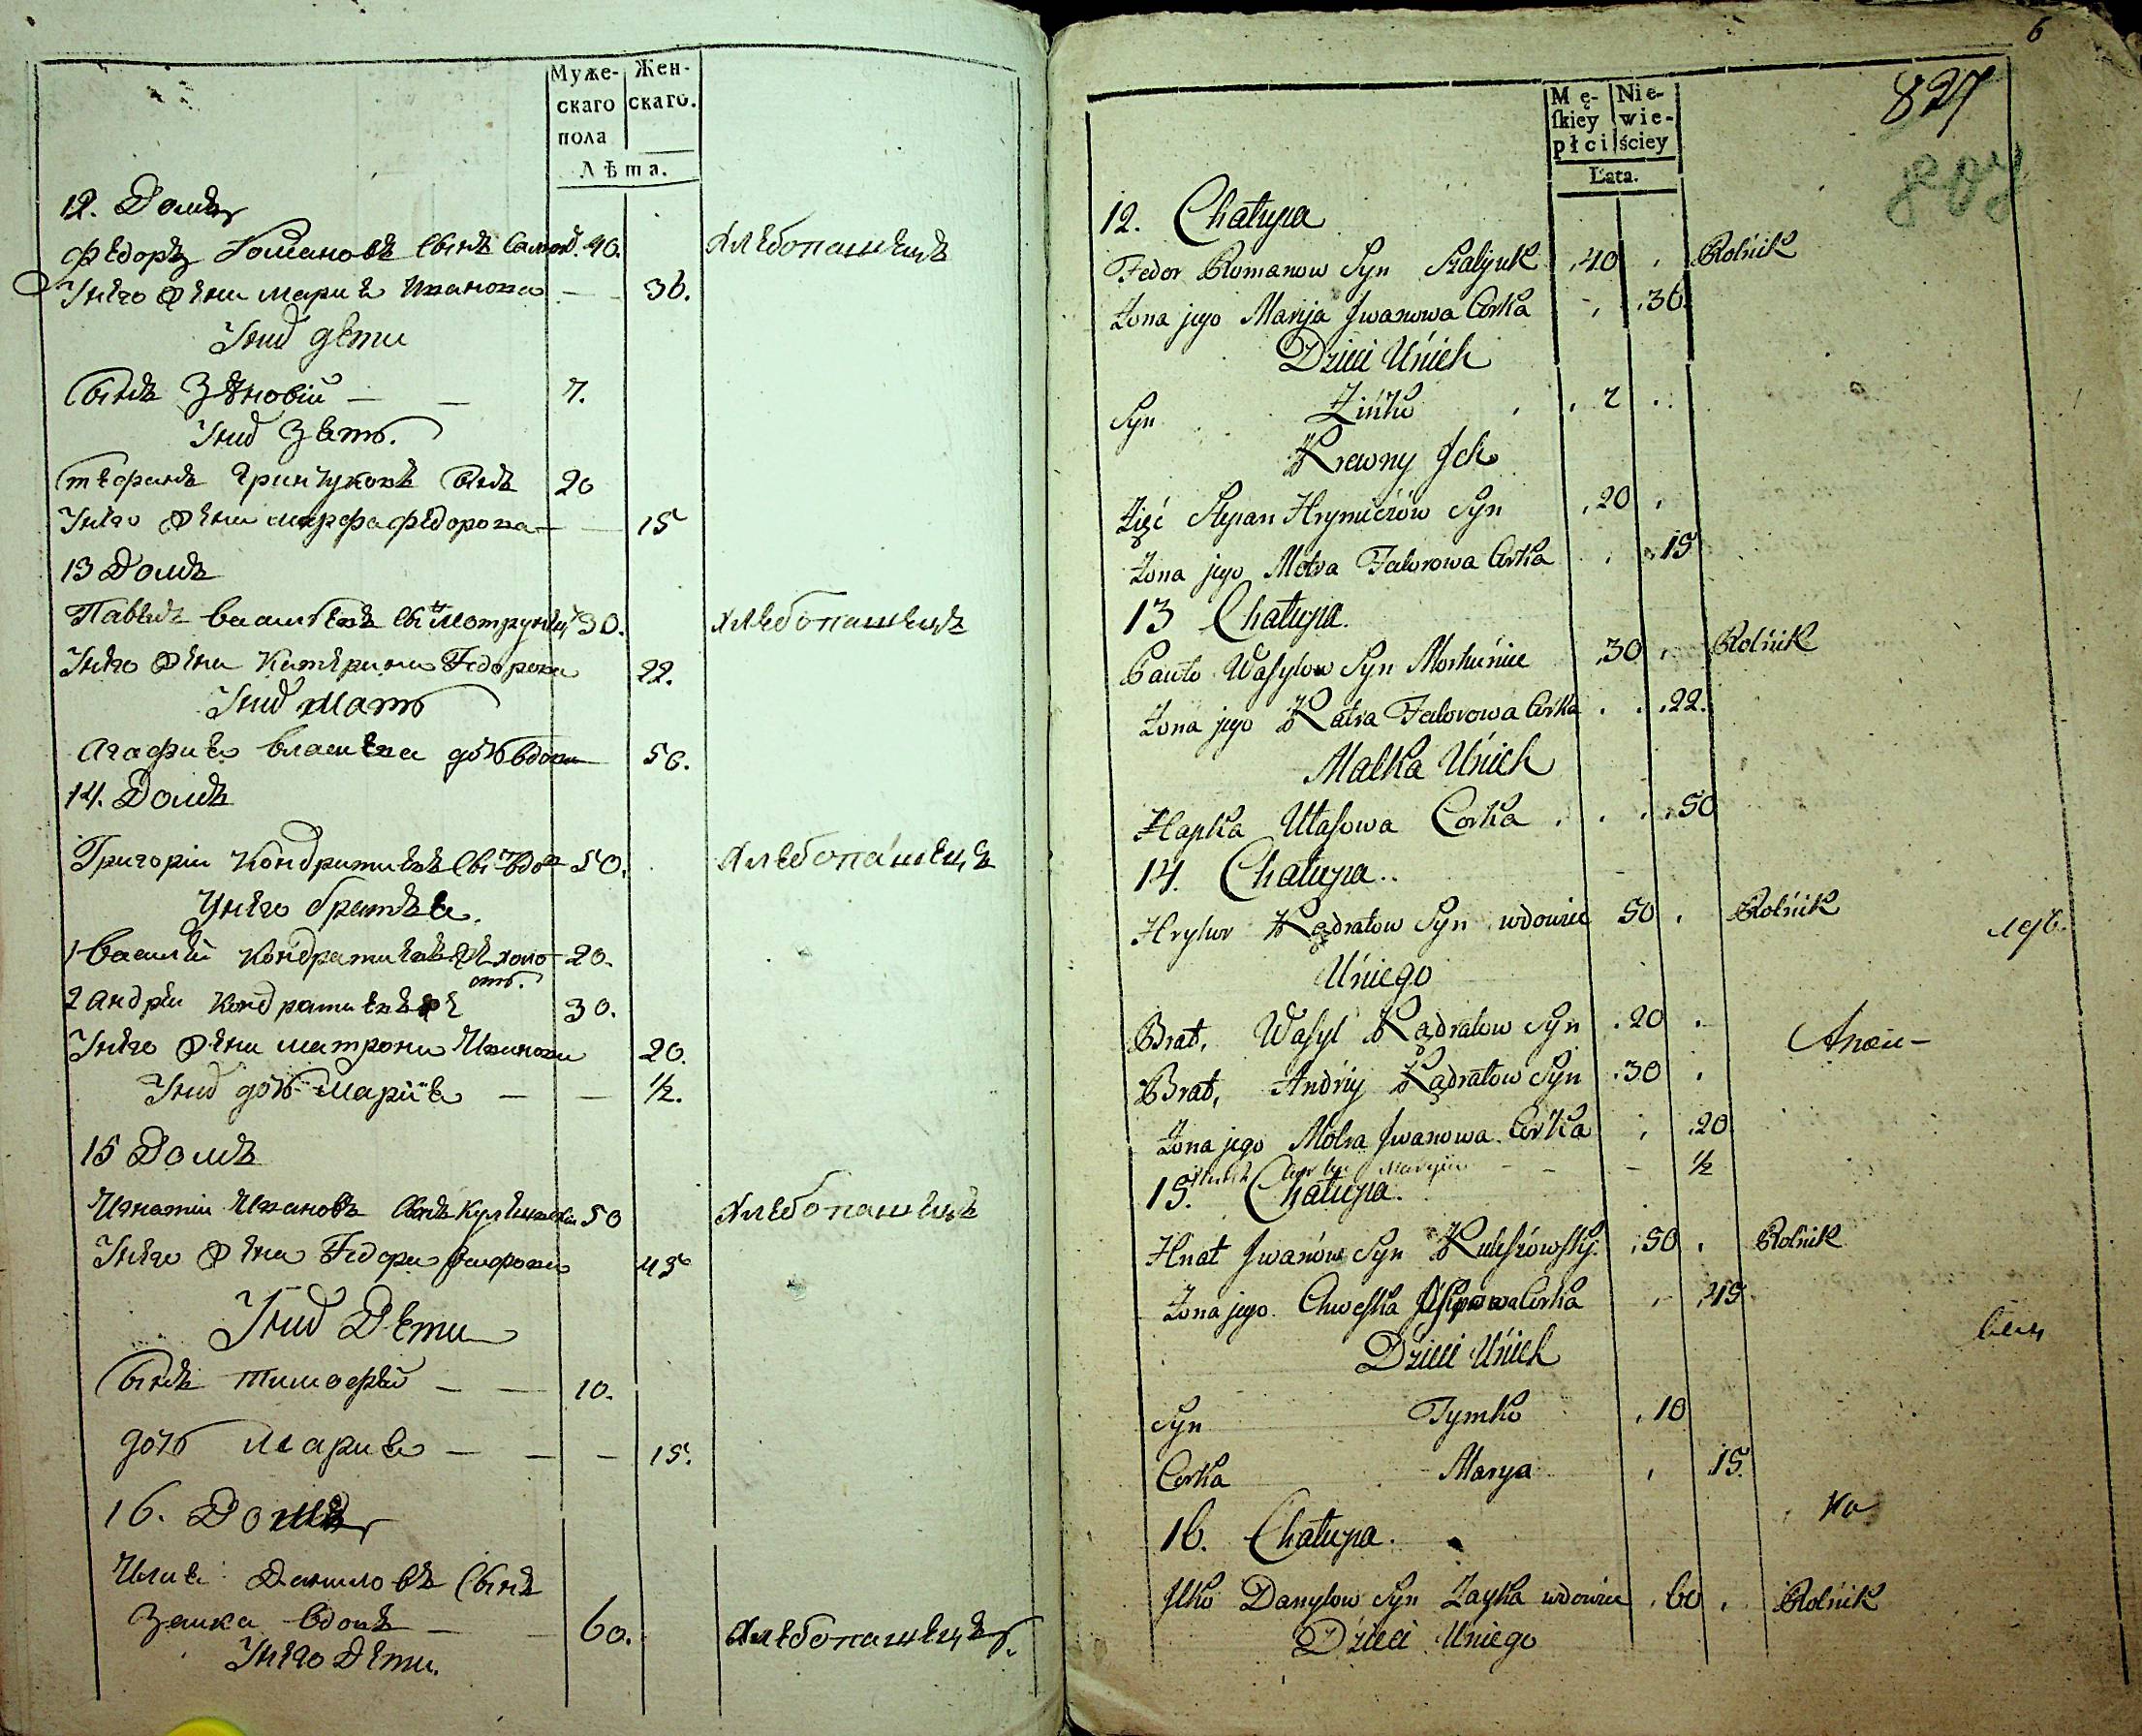 Муже-
скаго
пола
Жен-
скаго.
Лѣта.
12. Домъ
Федоръ Романовъ Сынъ 40. Хлѣбопашецъ
Унего Жена Мария Иванова 36.
Уних дѣти
Сынъ Зѣновій — — 7.
Уних Зять.
Стефанъ Гринчуковъ Сынъ 20
Унего Жена Марфа Федорова — — 15
13 Домъ
Павелъ Василѣвъ 30. Хлѣбопашецъ
Унего Жена Катерина Федорова 22.
Уних Мать
Агафия Власѣва дочь вдова 50.
14. Домъ
Григорій Кондратиевъ 50. Хлѣбопашецъ
Унего братья.
1 Василій Кондратиевъ холо- 20.
2 Андрій Кондратиевъ 30.
Унего Жена Матрона Иванова 20.
Уних дочь Марія — — ½.
15 Домъ
Игнатій Ивановъ Сынъ 50 Хлѣбопашецъ
Унего Жена Федора 45
Уних Дѣти
Сынъ Тимофѣй — — 10.
дочь Мария — — — 15.
16. Домъ
Илия Даниловъ Сынъ
Заика вдовъ — — 60. Хлѣбопашецъ.
Унего Дѣти.
6
827
807
Mę-
skiey
płci
Nie-
wie-
ściey
Lata.
12. Chałupa
Fedor Romanow Syn 40 Rolnik
Żona jego Marija Jwanowa Corka 36.
Dzieci Unich
Syn Zińko 7
Krewny Jch
Zięć Stepan Syn 20
Żona jego Motra Fedorowa Corka 15
13 Chałupa.
Pawło Wasylow Syn 30 Rolnik
Żona jego Katra Fedorowa Corka 22.
Matka Unich
Hapka Ułasowa Corka 50
14. Chałupa..
Hryhor Kądratow Syn wdowiec 50 Rolnik
Uniego
Brat, Wasyl Kądratow Syn 20
Brat, Andriy Kądratow Syn 30
Żona jego Motra Jwanowa Corka 20
Marya — — — ½
15. Chałupa.
Hnat Jwanów Syn Kuleszowsky. 50 Rolnik
Żona jego Chweska Corka 45
Dzieci Unich
Syn Tymko 10
Corka Marya 15.
16. Chałupa.
Jlko Danyłow Syn Zayka wdowiec 60 Rolnik
Dzieci Uniego